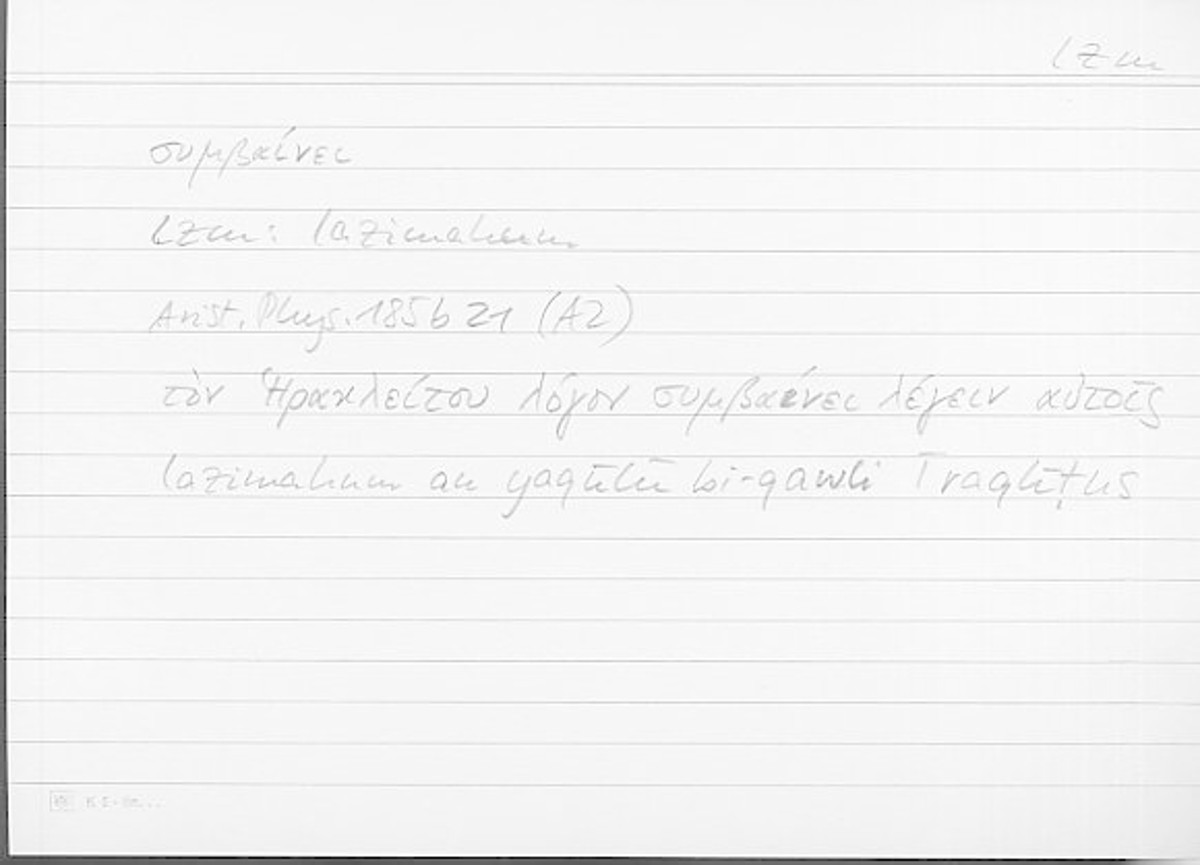 lzm
συμβαίνει
lzm: lazimahum
Arist. Phys. 185b21 (A2)
τὸν Ἡρακλείτου λόγον συμβαίνει λέγειν αὐτοῖς
lazimahum an yaqūlū bi-qawli Īraqlīṭus